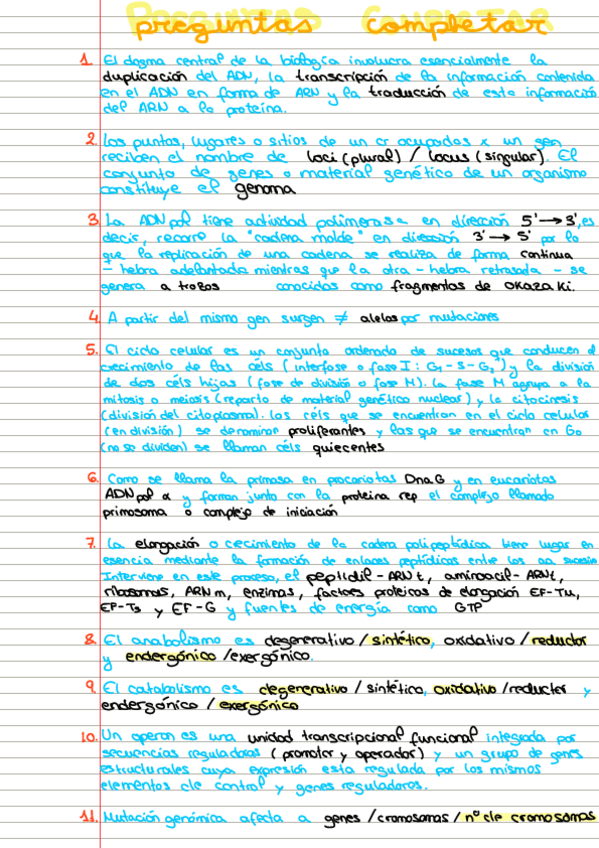 preguntas completar
1. El dogma central de la biología involucra esencialmente la
duplicación del ADN, la transcripción de la información contenida
en el ADN en forma de ARN y la traducción de esta información
del ARN a la proteína.
2. Los puntos, lugares o sitios de un cr ocupadas x un gen
reciben el nombre de loci (plural) / locus (singular). El
conjunto de genes o material genético de un organismo
constituye el genoma
3. La ADNpol tiene actividad polimerasa en dirección 5'→3', es
decir, recorre la "cadena molde" en dirección 3'→ 5' por lo
que la replicación de una cadena se realiza de forma continua
- hebra adelantada mientras que la otra - hebra retrasada - se
genera a trozos conocidas como fragmentos de OKazaKi.
4. A partir del mismo gen surgen ≠ alelos por mutaciones
5. El ciclo celular es un conjunto ordenado de sucesos que conducen al
crecimiento de las céls (interfase o fase I: G1-S-G2) y la división
de dos céls hijas (fase de división o fase M). La fase M agrupa a la
mitosis o meiosis (reparto de material genético nuclear) y la citocinesis
(división del citoplasma). Las céls que se encuentran en el ciclo celular
(en división) se denominan proliferantes y las que se encuentran en G0
(no se dividen) se llaman céls quiecentes
6. Como se llama la primasa en procariotas DnaG y en eucariotas
ADNpol α y forman junto con la proteína rep el complejo llamado
primosoma o complejo de iniciación
7. La elongación o crecimiento de la cadena polipeptídica tiene lugar en
esencia mediante la formación de enlaces peptídicos entre los aa sucesivos
Interviene en este proceso, el peptidil-ARNt, aminoacil-ARNt,
ribosomas, ARNm, enzimas, factores proteicos de elongación EF-Tu,
EF-Ts y EF-G y fuentes de energía como GTP
8. El anabolismo es degenerativo / sintético, oxidativo / reductor
y endergónico / exergónico.
9. El catabolismo es degenerativo / sintético, oxidativo / reductor y
endergónico / exergónico
10. Un operon es una unidad transcripcional funcional integrada por
secuencias reguladoras (promotor y operador) y un grupo de genes
estructurales cuya expresión esta regulada por los mismos
elementos de control y genes reguladores.
11. Mutación genómica afecta a genes / cromosomas / nº de cromosomas